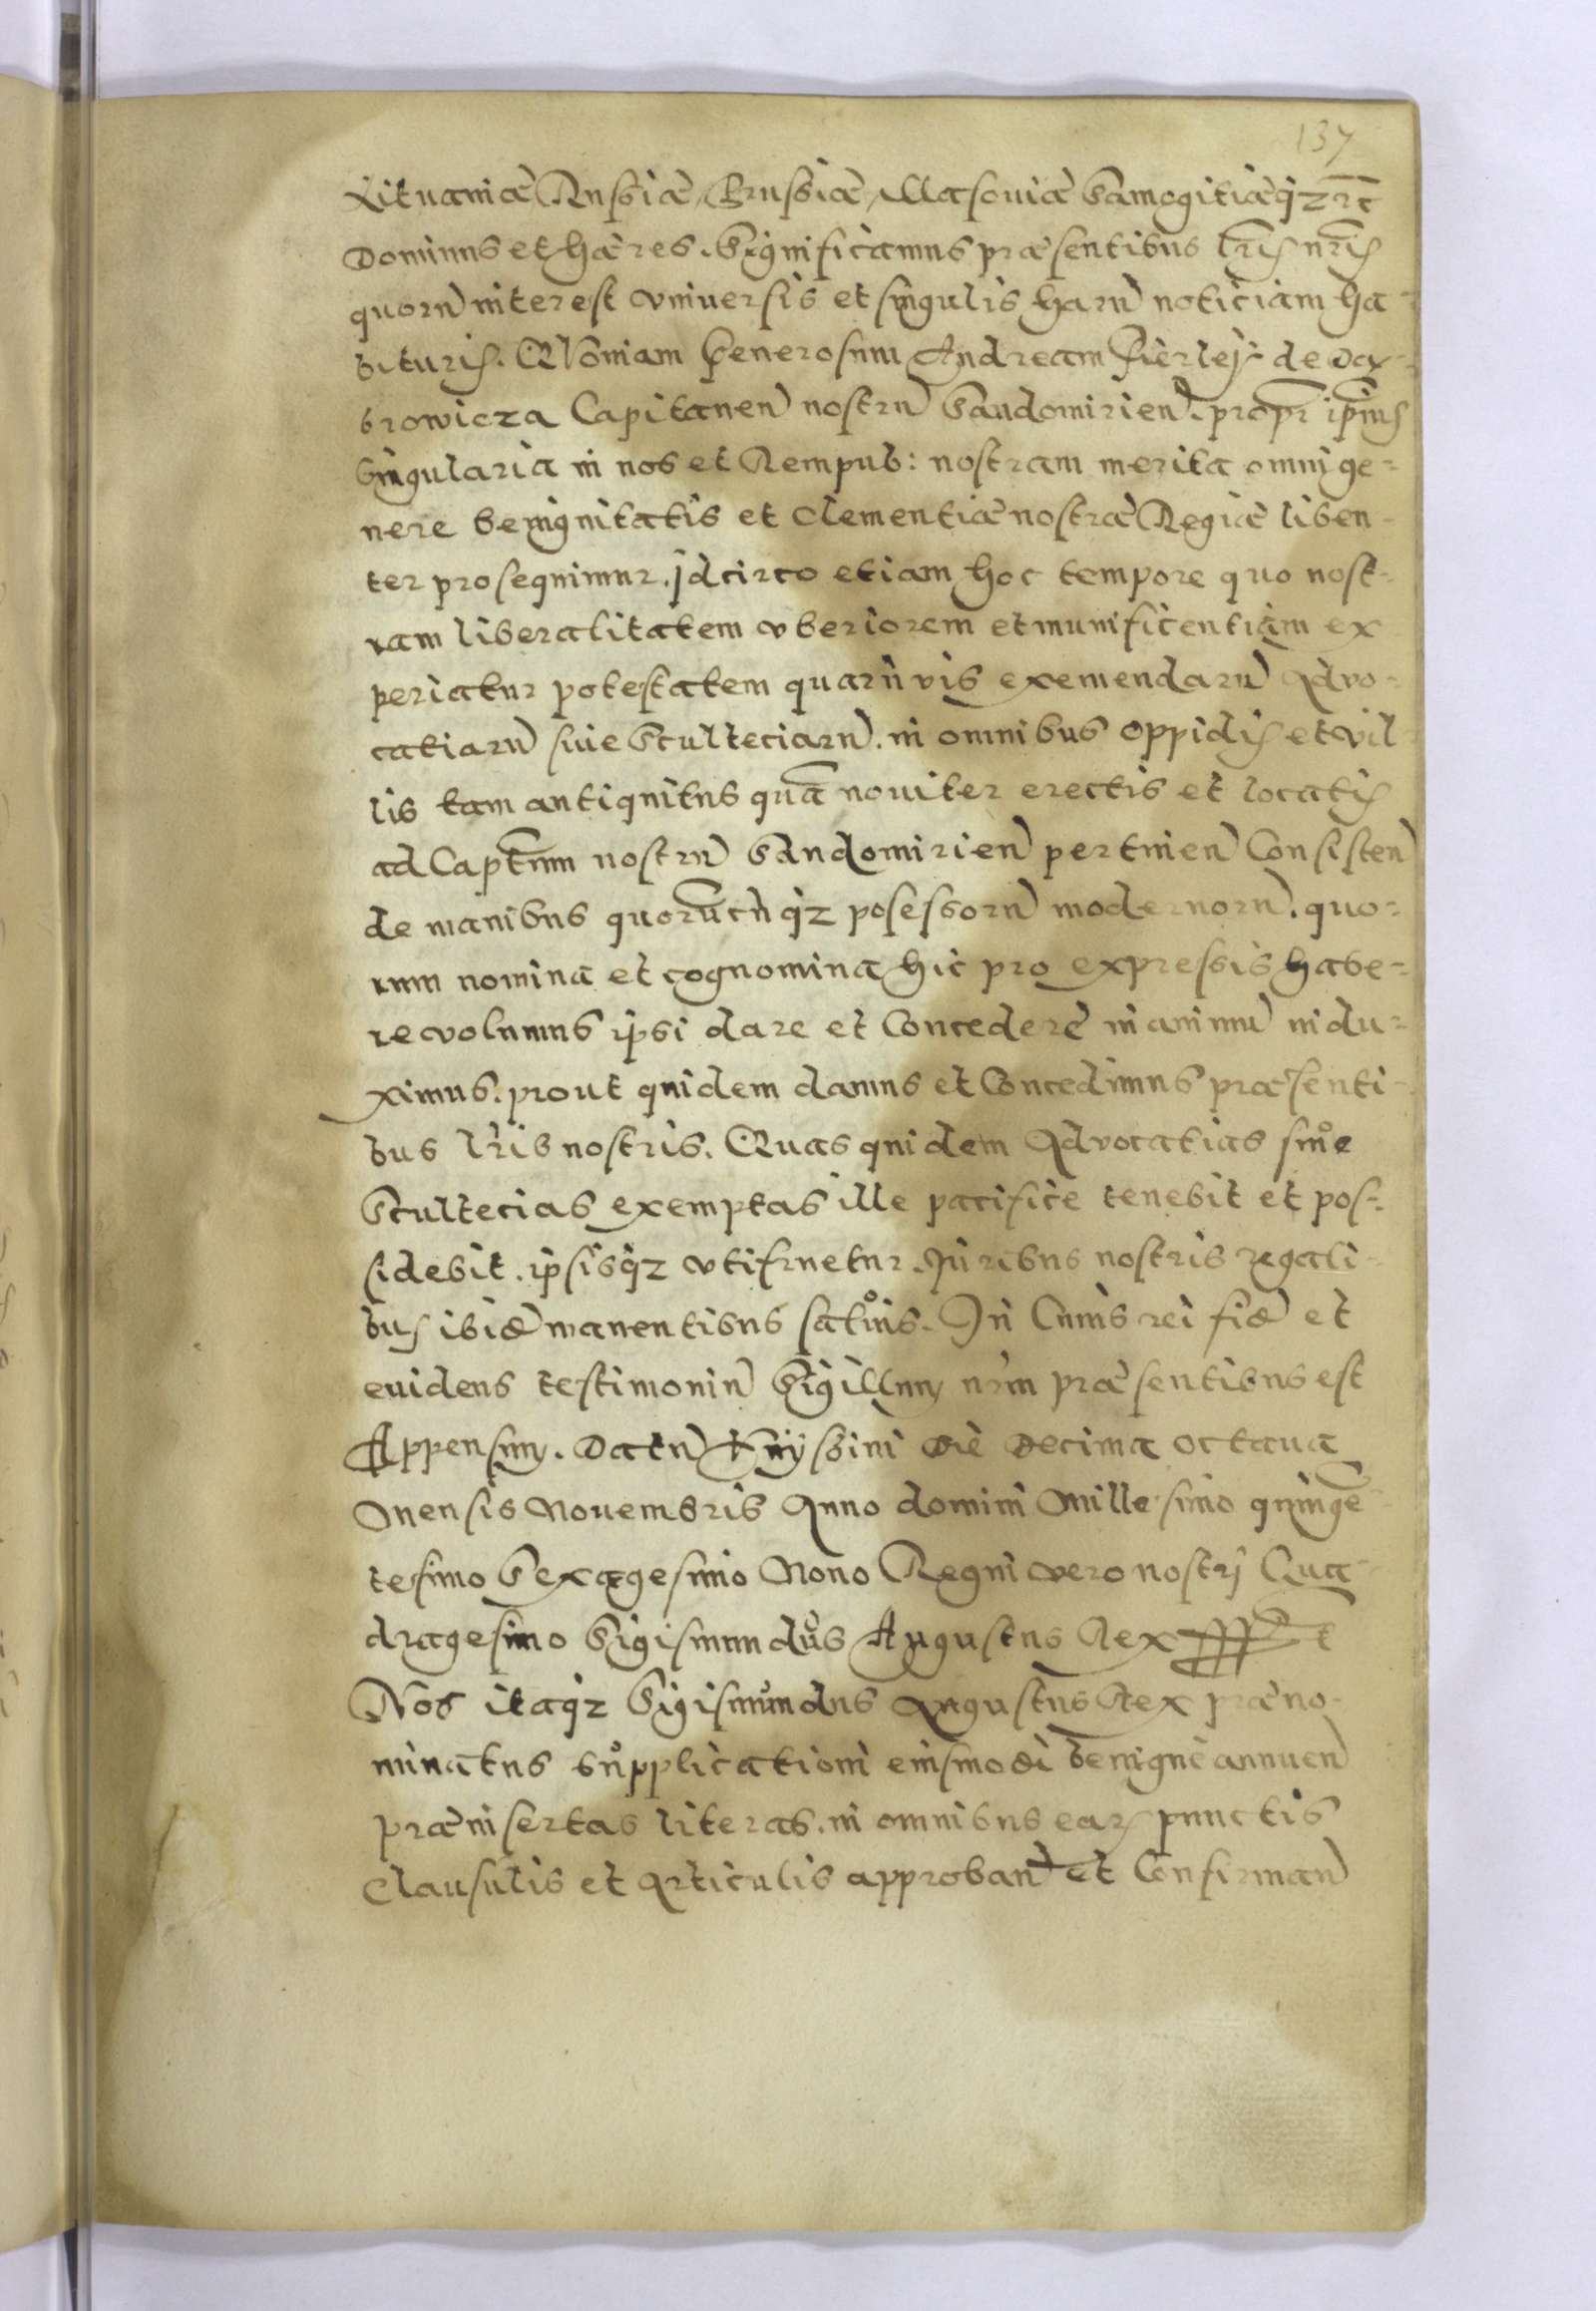 137
Lituaniæ Russiæ, Prussiæ, Masouiæ Samogitiæqz rc̄
Dominus et hæres. Significamus præsentibus l̅ris n̅ris
quorū interest vniuersis et singulis harū noticiam ha-
bituris. QVoniam Generosum Andream Fierleÿ de Da-
browicza Capitaneū nostrū Sandomirien̄. prop̅r ip̅ius
Singularia in nos et Rempub: nostram merita omni ge-
nere benignitatis et Clementiæ nostræ Regiæ liben-
ter prosequimur. jdcirco etiam hoc tempore quo nost-
ram liberalitatem vberiorem et munificentiam ex
periatur potestatem quarūvis exemendarū Advo-
catiarū siue Sculteciarū. in omnibus oppidis et vil-
lis tam antiquitus quā nouiter erectis et locatis
ad Capt̅um nostrū Sandomirien̄ pertinen̄ Consisten̄
de manibus quorūcūqz posessorū modernorū. quo-
rum nomina et cognomina hic pro expressis habe-
re volumus ipsi dare et Concedere in animū indu-
ximus. prout quidem damus et Concedimus præsenti-
bus l̅ris nostris. Quas quidem Advocatias siue
Scultecias exemptas ille pacifice tenebit et pos-
sidebit. ipsisqz vtifruetur. Iuribus nostris regali-
bus ibidē manentibus saluis. In Cuius rei fidē et
euidens testimoniū Sigillum n̅rm præsentibus est
Appensum. Datū Knÿssini die Decima octaua
Mensis Nouembris Anno domini Millesimo quingē
tesimo Sexagesimo Nono Regni vero nostrj Qua-
dragesimo Sigismundus Augustus Rex
Nos itaqz Sigismundus Augustus Rex præno-
minatus supplicationi eiusmodi benigne annuen̄
præinsertas literas. in omnibus ear̄ punctis
Clausulis et Articulis approban̄ et Confirman̄